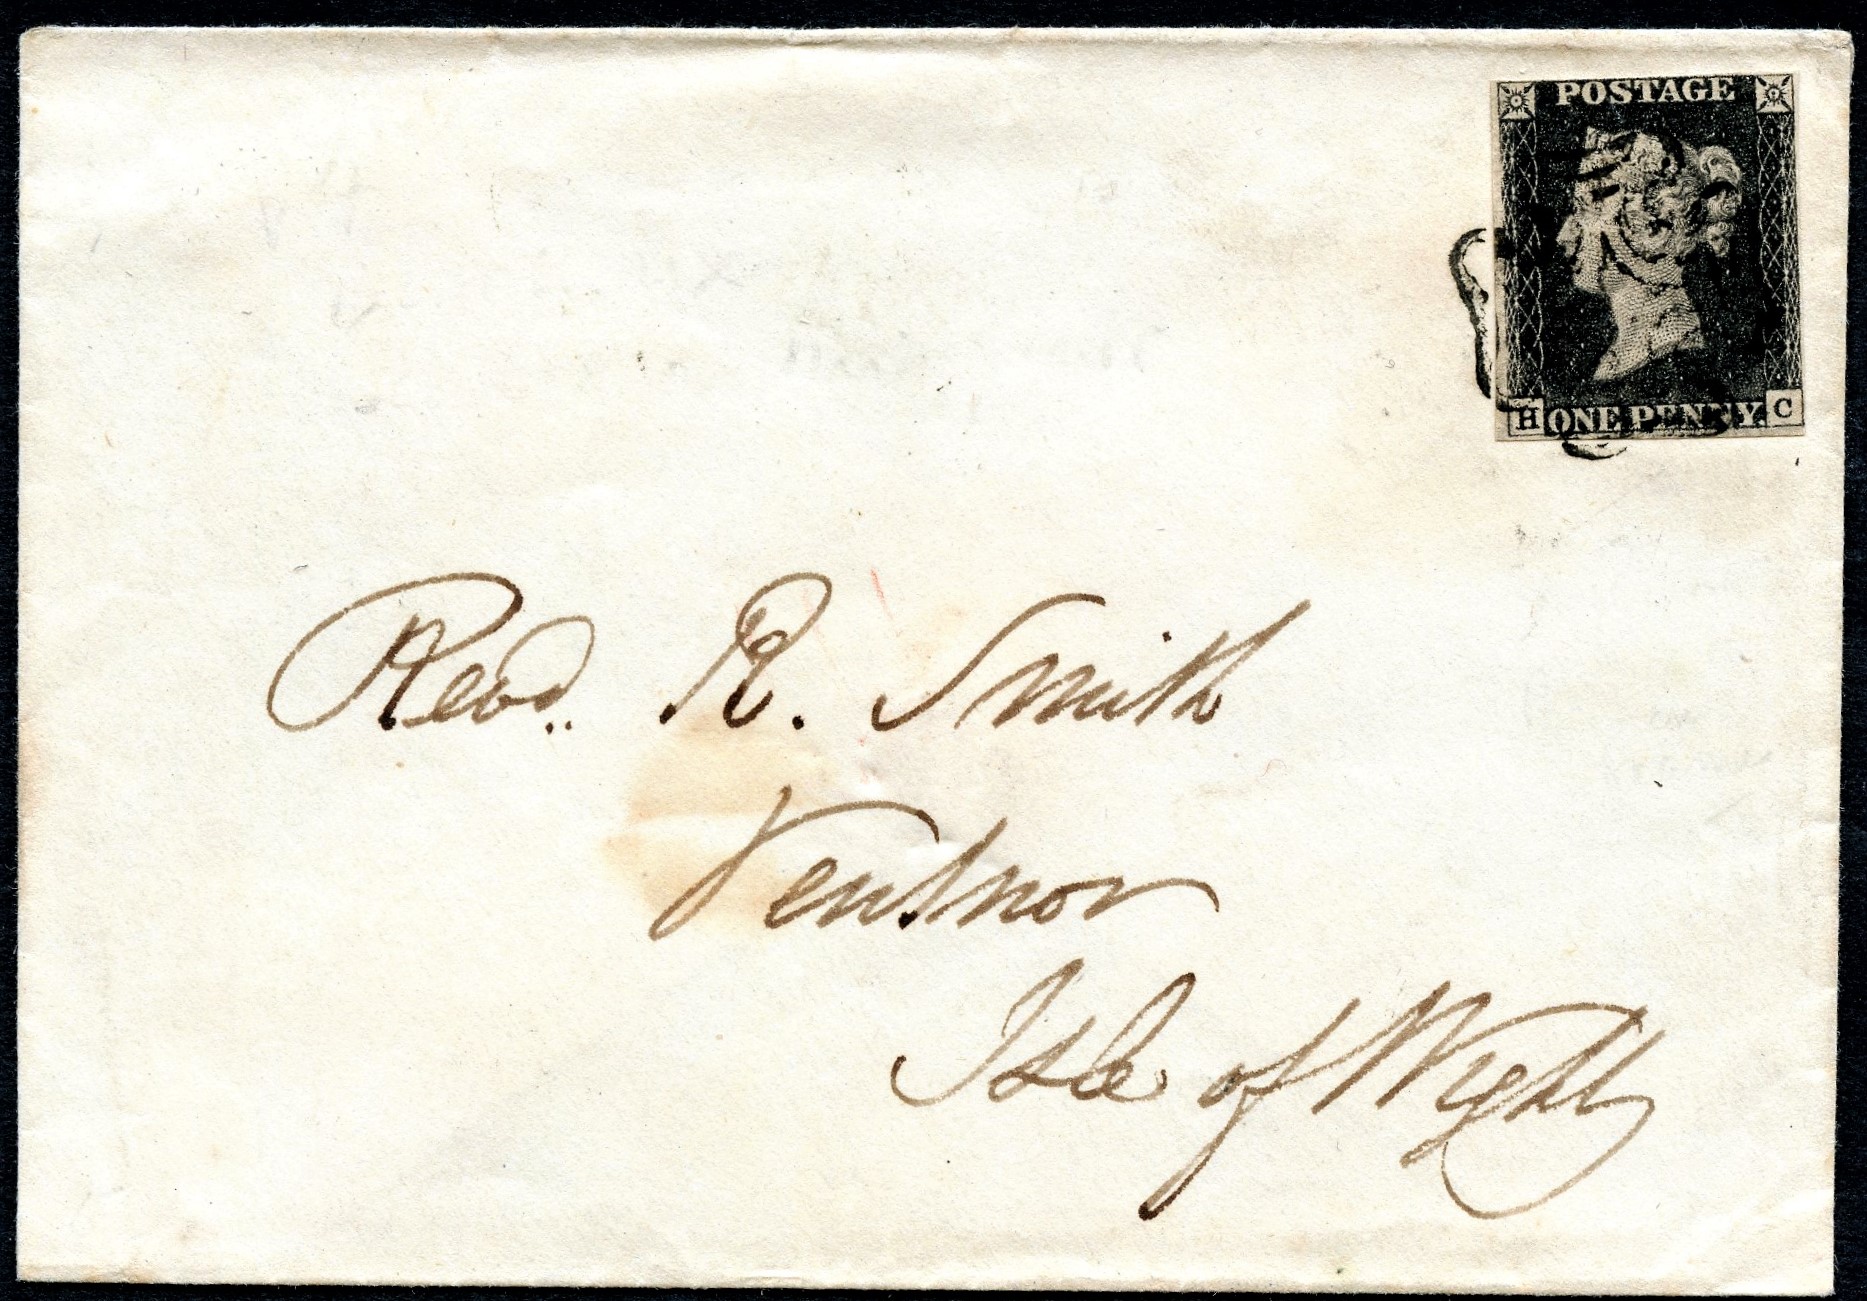 POSTAGE
H ONE PENNY. C
Revd. R. Smith
Ventnor
Isle of Wight